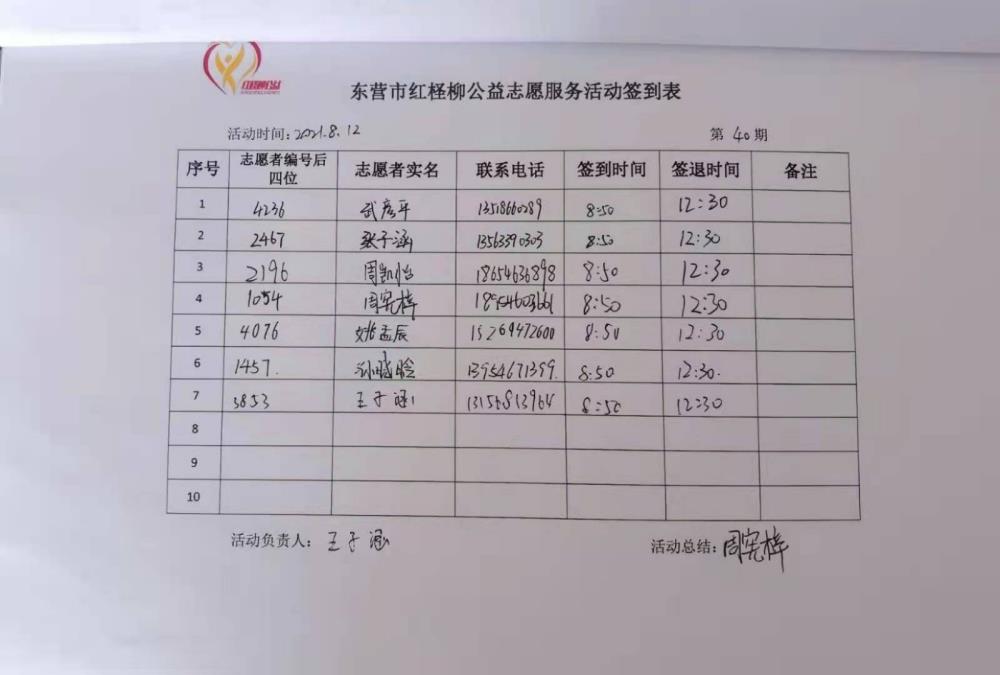 东营市红柽柳公益志愿服务活动签到表
活动时间:2021.8.12 第 40 期
序号 志愿者编号后四位 志愿者实名 联系电话 签到时间 签退时间 备注
1 4236 武彦平 13518660289 8:50 12:30
2 2467 张子涵 13563390303 8:50 12:30
3 2196 周凯怡 18654636898 8:50 12:30
4 1054 周宪梓 8:50 12:30
5 4076 姚孟辰 15269472600 8:50 12:30
6 1457. 13954671399. 8:50 12:30.
7 3853 王子涵 13156813964 8:50 12:30
8
9
10
活动负责人: 王子涵 活动总结: 周宪梓